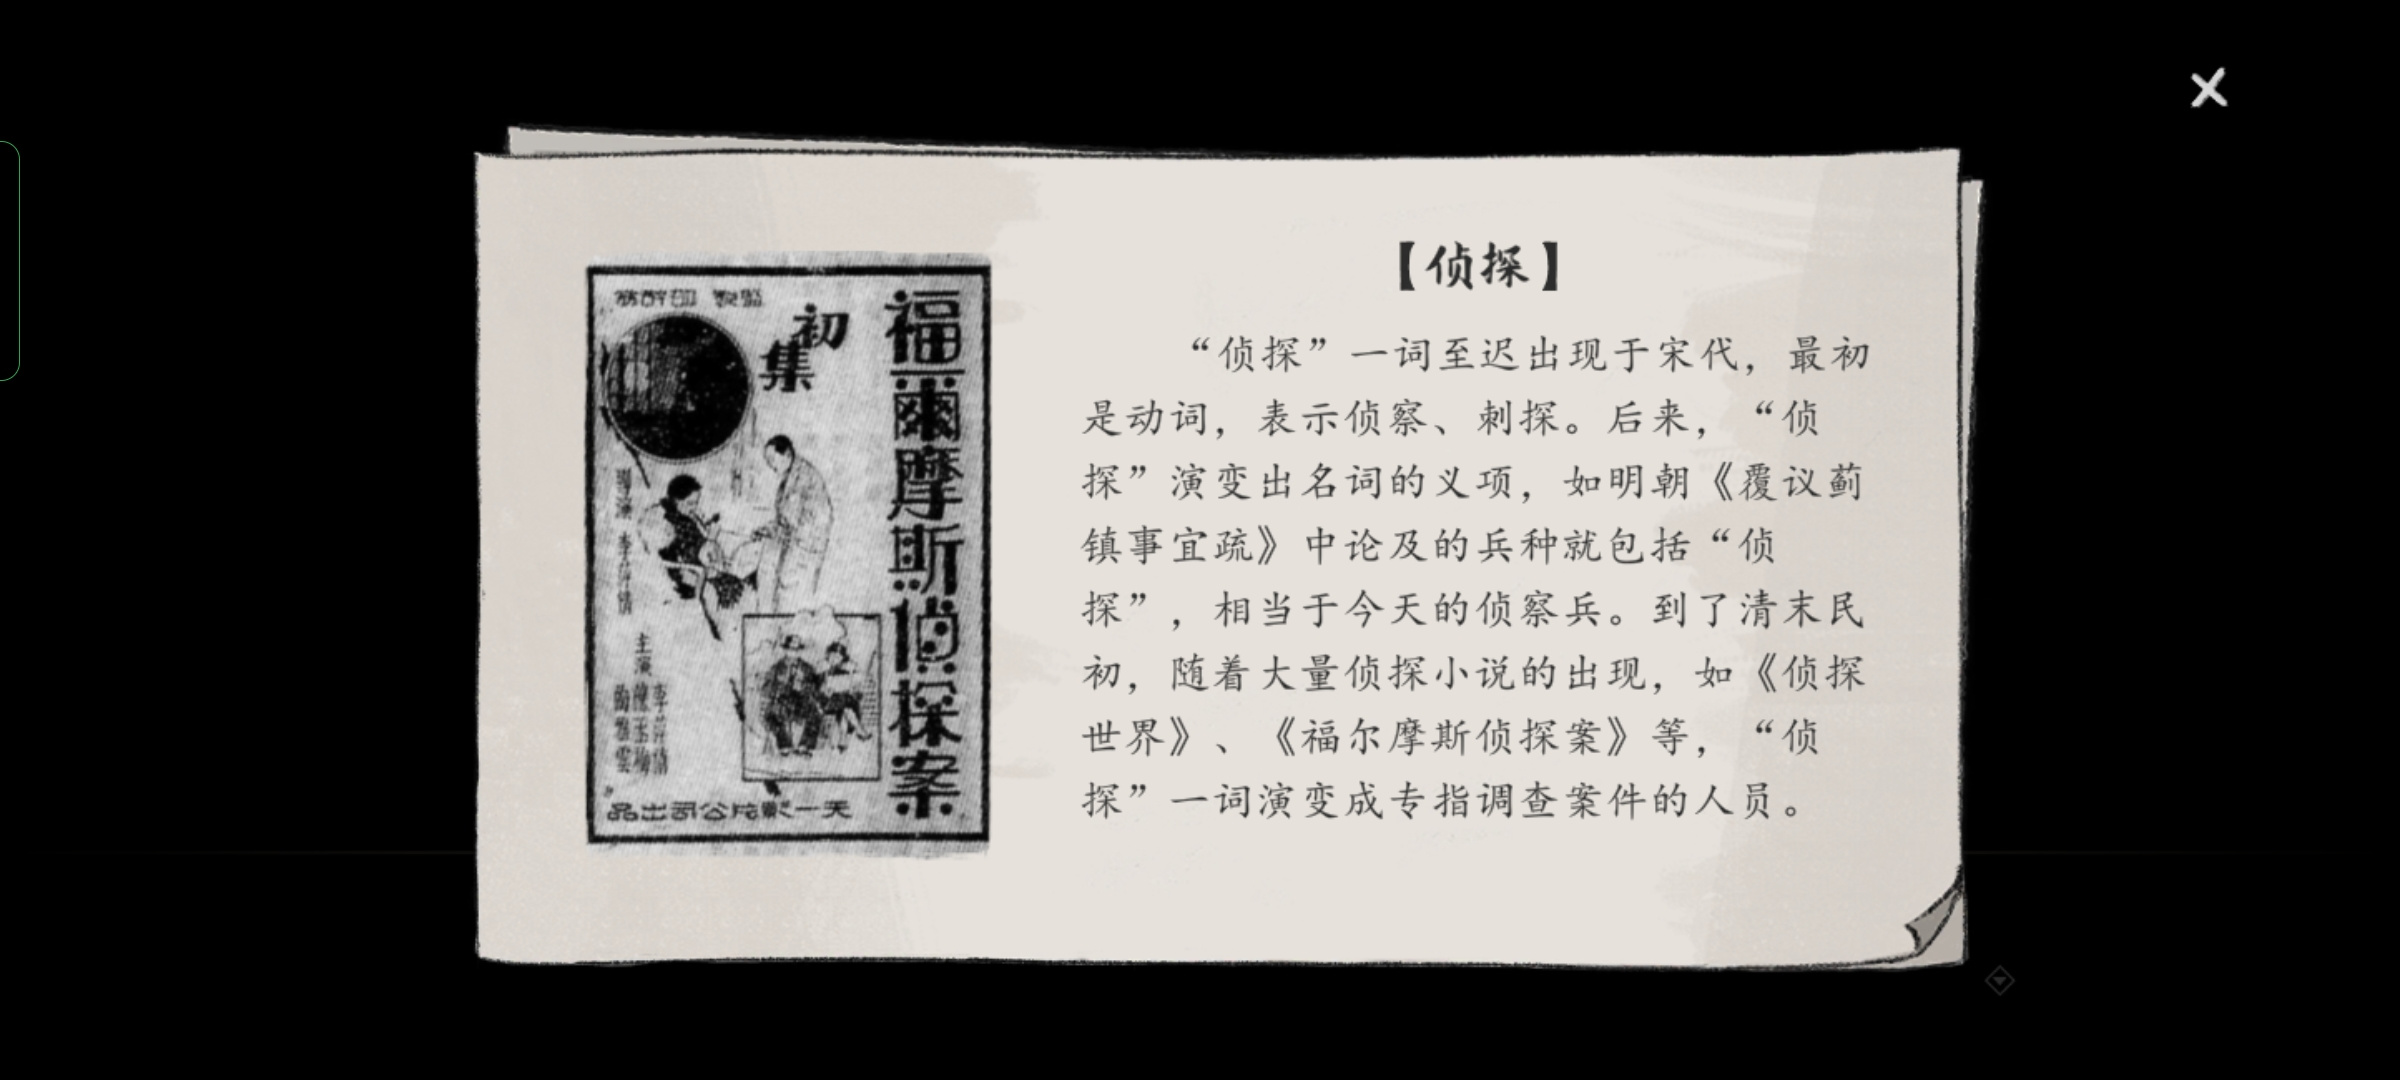 【侦探】
“侦探”一词至迟出现于宋代，最初
是动词，表示侦察、刺探。后来，“侦
探”演变出名词的义项，如明朝《覆议蓟
镇事宜疏》中论及的兵种就包括“侦
探”，相当于今天的侦察兵。到了清末民
初，随着大量侦探小说的出现，如《侦探
世界》、《福尔摩斯侦探案》等，“侦
探”一词演变成专指调查案件的人员。
福爾摩斯偵探案
初集
導演 李萍倩
主演
李萍倩
陳玉梅
天一影片公司出品